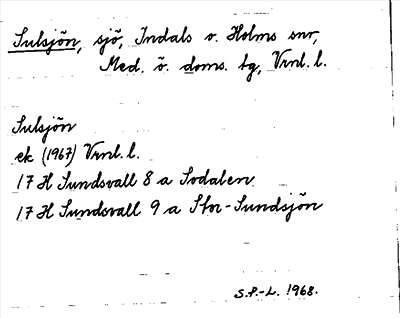 Sulsjön, sjö, Indals o. Holms snr,
Med. ö. doms. tg, Vrnl. l.
Sulsjön
ek (1967) Vrnl. l.
17 H Sundsvall 8 a Sodalen
17 H Sundsvall 9 a Stor-Sundsjön
S.P.-L. 1968.